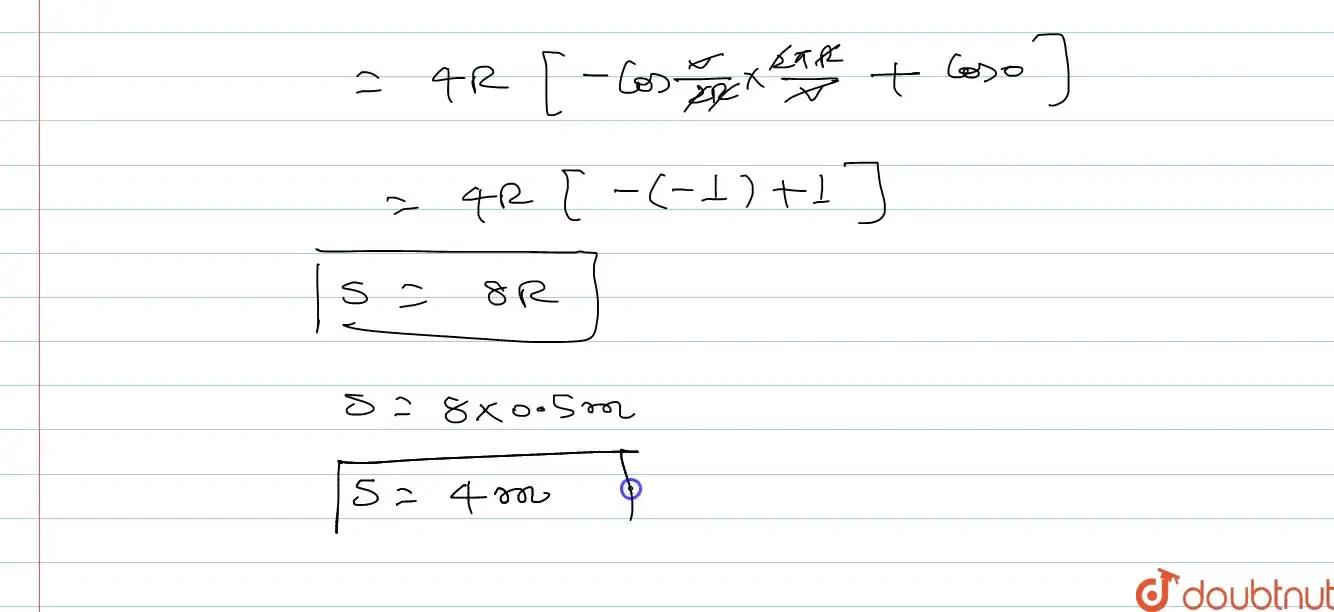 = 4R [ -Cos v/2R × 2πR/v + Cos 0 ]
= 4R [ -(-1) + 1 ]
S = 8R
S = 8 × 0.5m
S = 4m
doubtnut